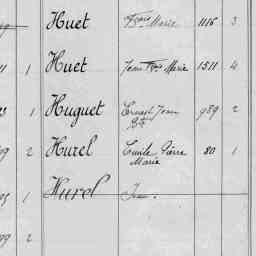 Huet Frçois Marie 1116 3
1 Huet Jean Frçois Marie 1511 4
1 Huguet Ernest Jean 989 2
Bte
2 Hurel Emile Pierre 80 1
Marie
1 Hurel Jean
2